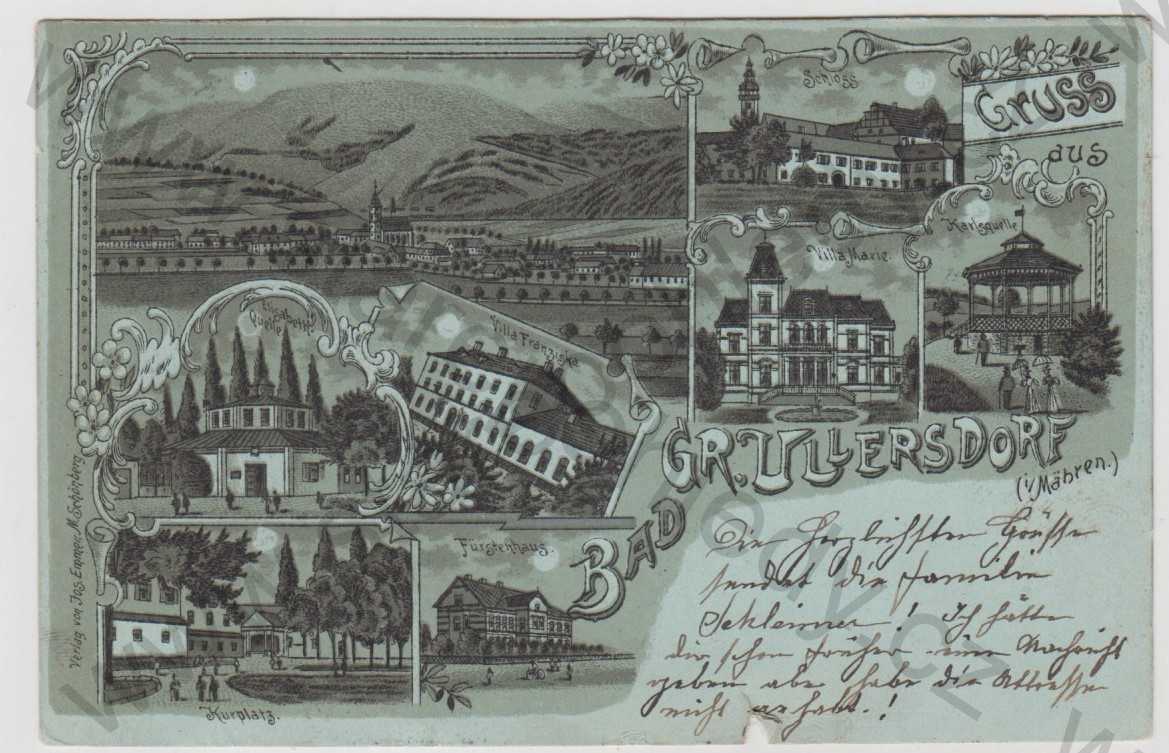 Gruss
aus
Schloss
Karlsquelle
Villa Marie.
Elisabeth
Quelle
Villa Franziska
BAD GR. ULLERSDORF
(i/Mähren.)
Fürstenhaus.
Kurplatz.
Verlag von Jos. Emmer, M. Schönberg.
Die herzlichsten Grüsse
sendet die Familie
! Ich hätte
dir schon früher eine Nachricht
geben aber habe die Attresse
nicht erhalt.!